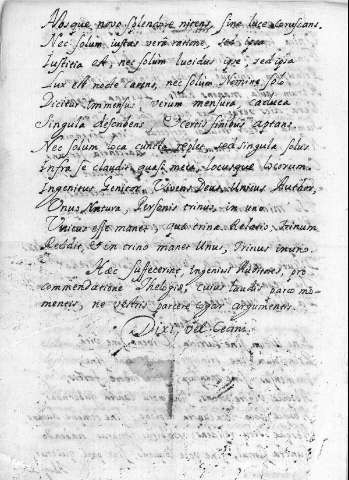 Absque novo splendore nitens, sine luce coruscans.
Nec solum iustus vera ratione, sed ipsa
Iustitia est, nec solum lucidus ipse, sed ipsa
Lux est nocte carens, nec solum Nomine solo
Dicitur immensus; verum mensura, caduca
Singula desondens, certis finibus aptans
Nec solum loca cuncta replet, sed singula solus
Infra se claudit, quasi meta, locusque locorum.
Ingenitus, Genitor, Vivens Deus, Unius Author,
Unus Natura, Personis trinus, in uno
Unicus esse manet, quo trina Relatio, Trinum
Reddit, & in trino manet Unus, Trinus in uno.
Haec suffecerint, ingeniosi Auditores, pro
commendatione Theologiae, cuius laudis parco mo-
mentis, ne vestris parcere cogar argumentis.
Dixi, vel Cecini.